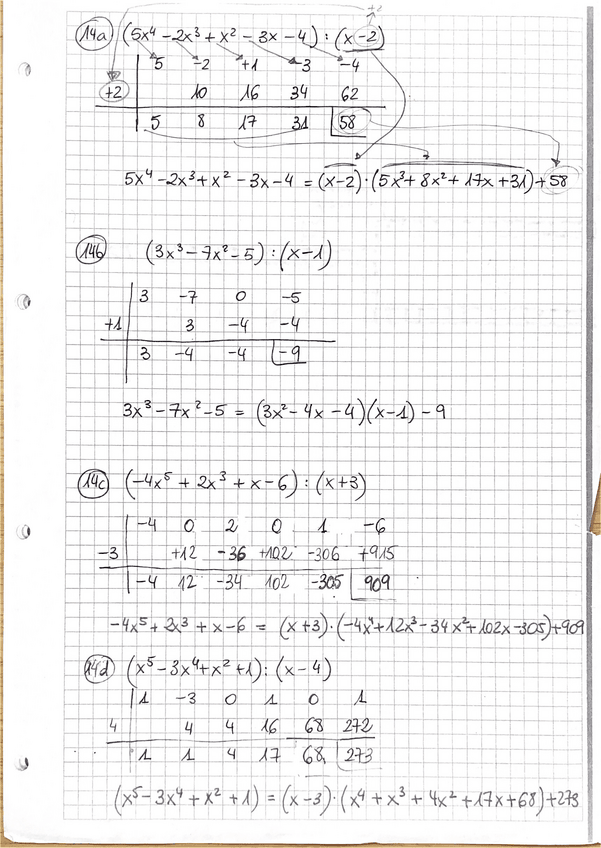 +2
14a (5x⁴ - 2x³ + x² - 3x - 4) : (x - 2)
5 -2 +1 -3 -4
+2 10 16 34 62
5 8 17 31 58
5x⁴ - 2x³ + x² - 3x - 4 = (x-2) · (5x³ + 8x² + 17x + 31) + 58
14b (3x³ - 7x² - 5) : (x - 1)
3 -7 0 -5
+1 3 -4 -4
3 -4 -4 -9
3x³ - 7x² - 5 = (3x² - 4x - 4)(x - 1) - 9
14c (-4x⁵ + 2x³ + x - 6) : (x + 3)
-4 0 2 0 1 -6
-3 +12 -36 +102 -306 +915
-4 12 -34 102 -305 909
-4x⁵ + 2x³ + x - 6 = (x + 3) · (-4x⁴ + 12x³ - 34x² + 102x - 305) + 909
14d (x⁵ - 3x⁴ + x² + 1) : (x - 4)
1 -3 0 1 0 1
4 4 4 16 68 272
1 1 4 17 68 273
(x⁵ - 3x⁴ + x² + 1) = (x - 3) · (x⁴ + x³ + 4x² + 17x + 68) + 273